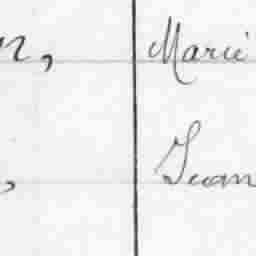 n, Marie
, Jean